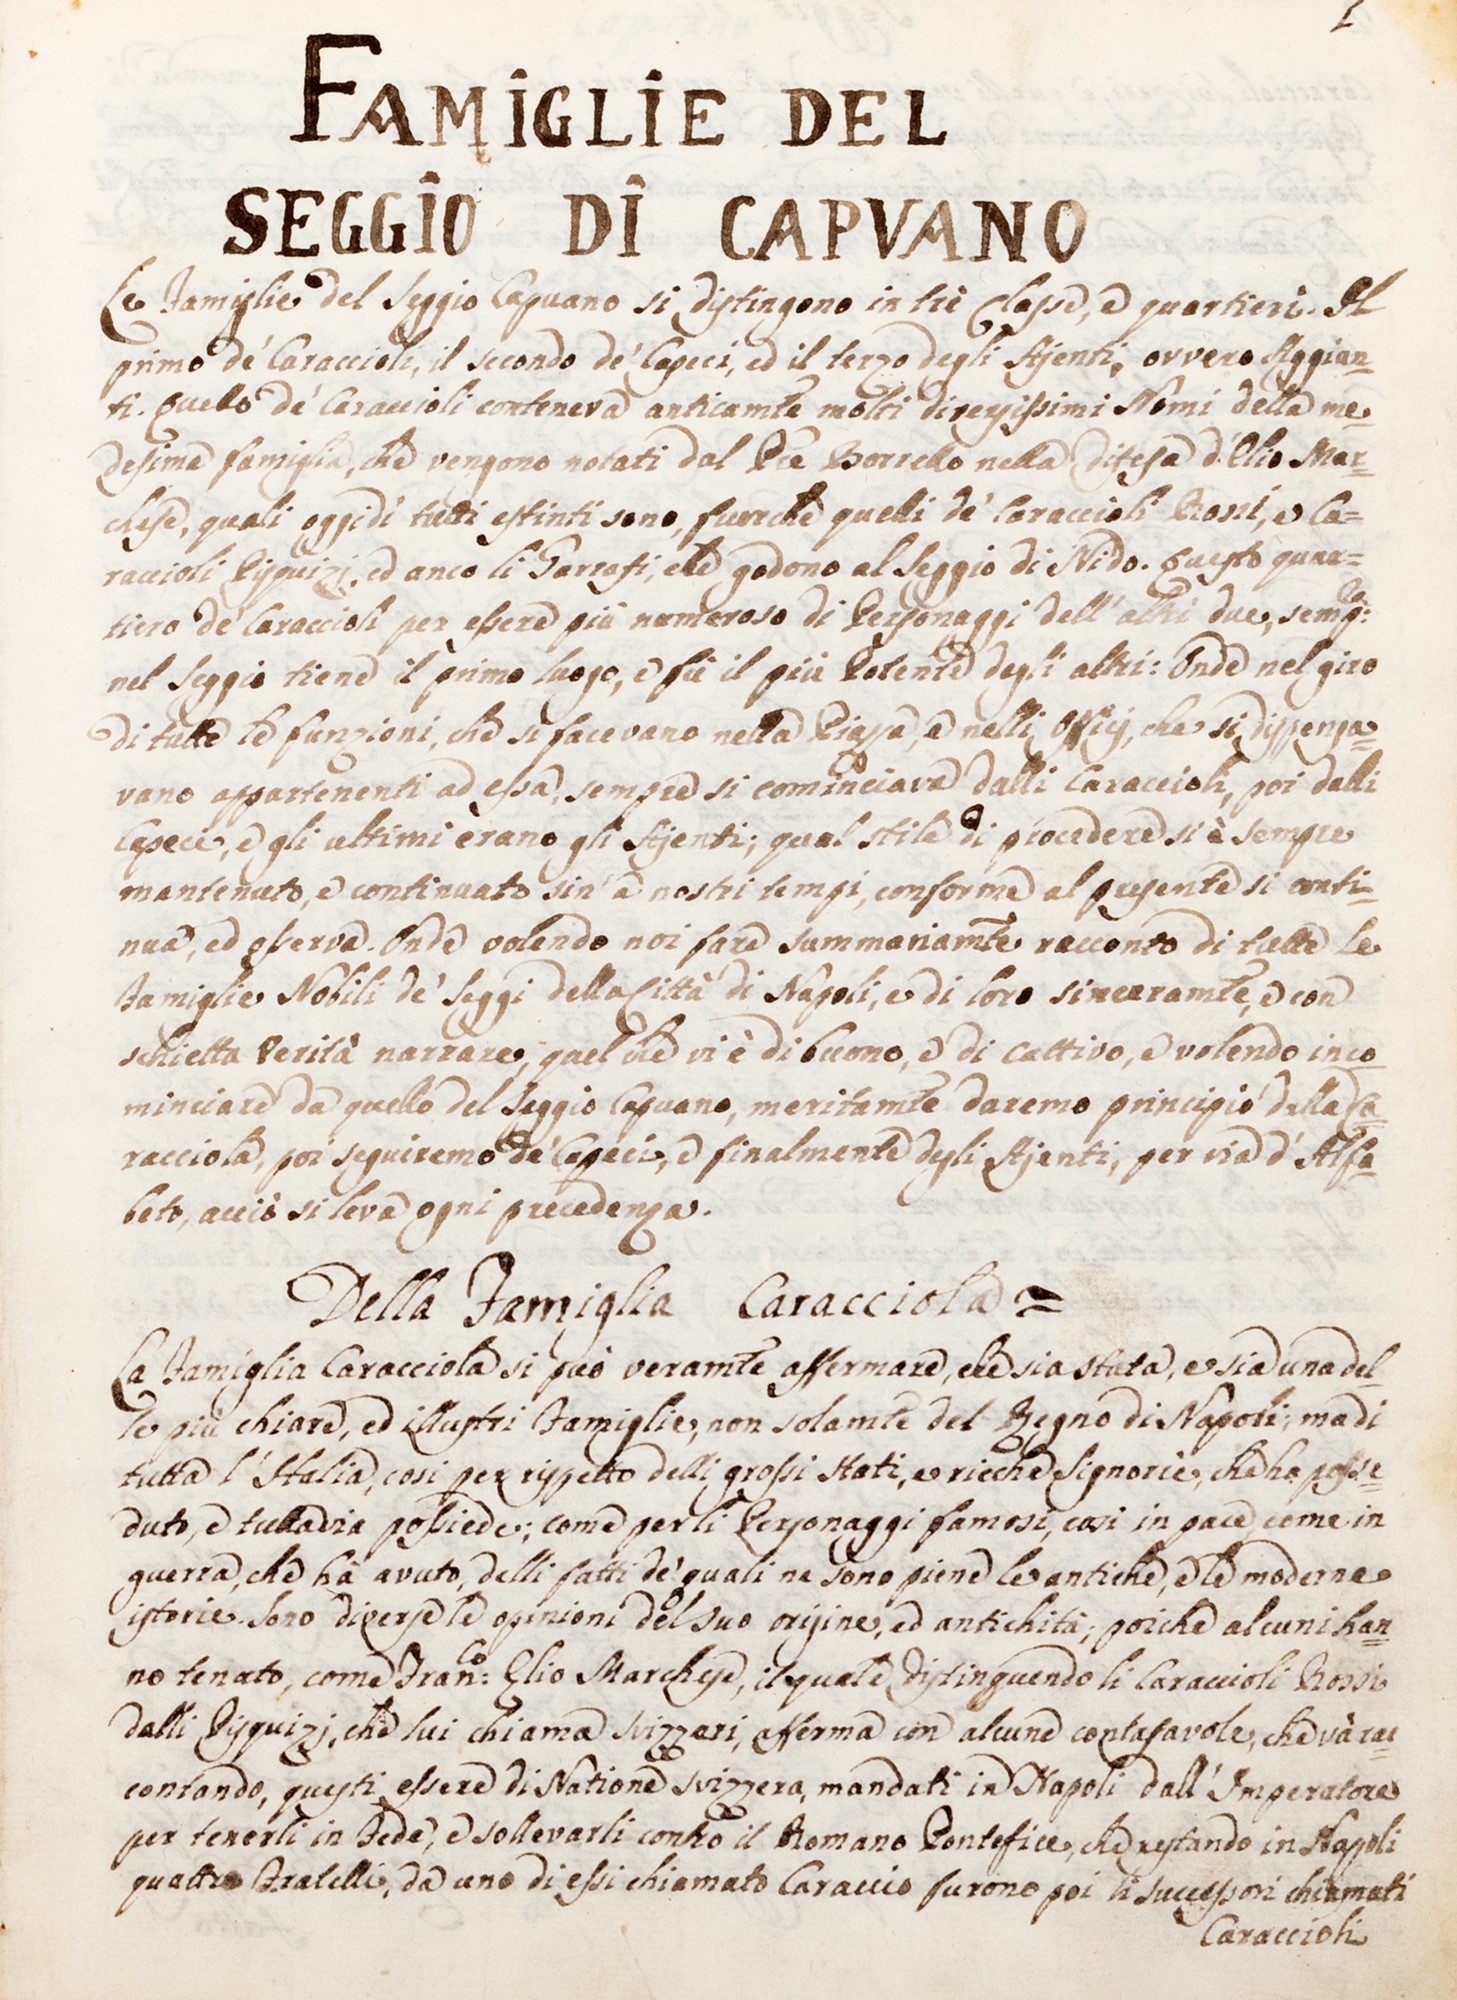 1
FAMIGLIE DEL
SEGGIO DI CAPVANO
Le Famiglie del Seggio Capuano si distingono in trè Classe, e quartieri. Il
primo de' Caraccioli, il secondo de' Capeci, ed il terzo degli Ajenti, ovvero Aggian=
ti. Quello de' Caraccioli conteneva anticamte molti diversissimi Nomi della me
desima famiglia, che vengono notati dal Pre Borrello nella Difesa d'Elio Mar=
chese, quali oggidì tutti estinti sono, fuorche quelli de' Caraccioli Rossi, e Ca=
raccioli Pisquizj, ed anco li Garrafi, che godono al Seggio di Nido. Questo quar=
tiero de' Caraccioli per essere più numeroso di Personaggi dell'altri due, sempre:
nel Seggio tiene il primo luogo, e fù il più Potente degli altri: Onde nel giro
di tutte le funzioni, che si facevano nella Piazza, e nelli Officij, che si dispensa=
vano appartenenti ad essa, sempre si cominciava dalli Caraccioli, poi dalli
Capece, e gli ultimi èrano gli Ajenti; qual stile di procedere si è sempre
mantenuto, e continuato sin' a nostri tempi, conforme al presente si conti=
nua, ed osserva. Onde volendo noi fare summariamte racconto di tutte le
Famiglie Nobili de' Seggi della Città di Napoli, e di loro sinceramte, e con
schietta Verità narrare, quel che vi è di buono, e di cattivo, e volendo inco
minciare da quello del Seggio Capuano, meritamte daremo principio della Ca=
racciola, poi seguiremo de' Capeci, e finalmente degli Ajenti, per via d'Alfa=
beto, acciò si leva ogni precedenza.
Della Famiglia Caracciola =
La Famiglia Caracciola si può veramte affermare, che sia stata, e sia una del=
le più chiare, ed illustri Famiglie, non solamte del Regno di Napoli; ma di
tutta l'Italia, così per rispetto delli grossi stati, e ricche Signorie, che ha posse=
duto, e tuttavia possiede; come per li Personaggi famosi, così in pace, come in
guerra, che hà avuto, delli fatti de' quali ne sono piene le antiche, e le moderne
istorie. Sono diverse le opinioni del suo origine, ed antichità; poiche alcuni han=
no tenuto, come Franco: Elio Marchese, il quale distinguendo li Caraccioli Rossi
dalli Pisquizj, che lui chiama svizzeri, afferma con alcune contafavole, che và rac=
contando, questi essere di Natione svizzera, mandati in Napoli dall'Imperatore
per tenerli in Fede, e sollevarli contro il Romano Pontefice, che restando in Napoli
quattro Fratelli, da uno di essi chiamato Caraccio furono poi li successori chiamati
Caraccioli